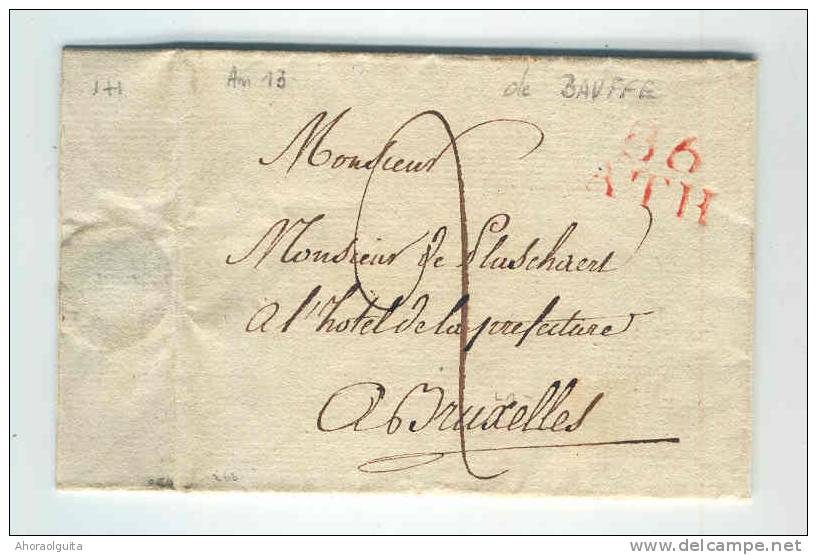 An 13
de BAUFFE
86
ATH
Monsieur
Monsieur de Pluschaert
a l'hotel de la prefecture
A Bruxelles
Ahoraolguita
delcampe.net